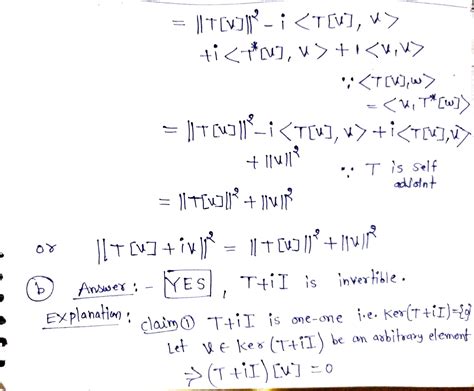 = ||T[v]||² - i <T[v], v>
+i <T*[v], v> + 1 <v,v>
∵ <T[v],w>
= <v, T*[w]>
= ||T[v]||² - i <T[v], v> + i <T[v],v>
+ ||v||² ∵ T is self
adjoint
= ||T[v]||² + ||v||²
or ||T[v] + iv||² = ||T[v]||² + ||v||²
(b) Answer : - YES , T+iI is invertible.
Explanation : claim ① T+iI is one-one i.e. Ker(T+iI)={0}
Let v ∈ Ker (T+iI) be an arbitrary element
⇒ (T+iI)[v] = 0